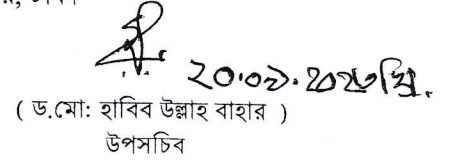 ২০.০৯.২০২৩খ্রি.
( ড.মো: হাবিব উল্লাহ বাহার )
উপসচিব